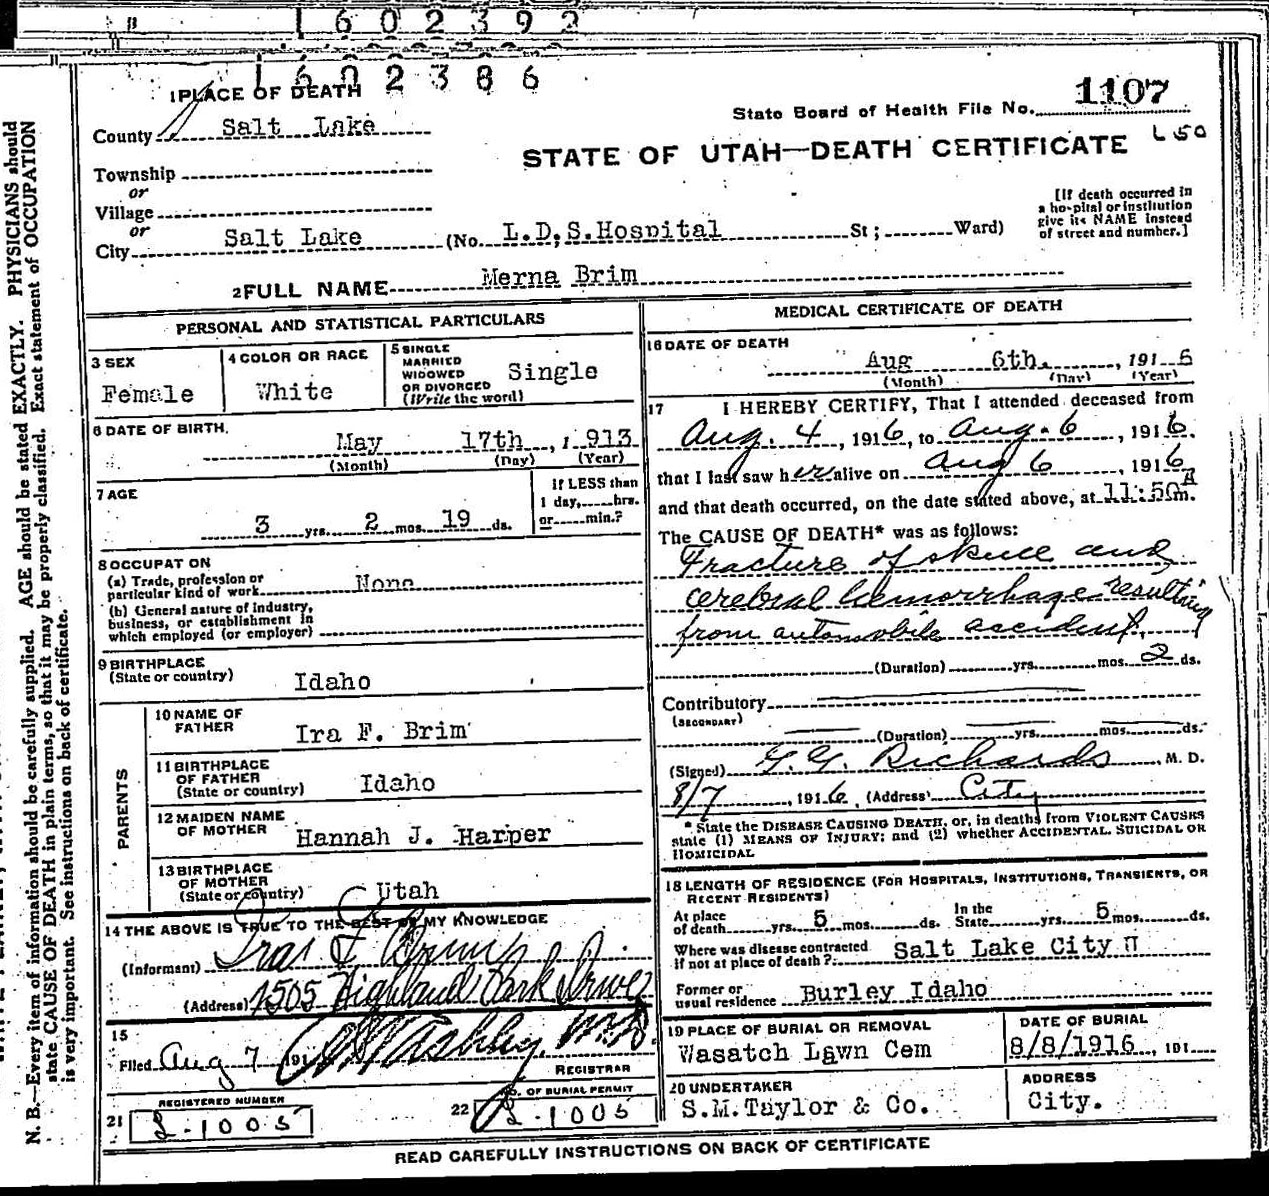 1602392
1602386
1 PLACE OF DEATH
State Board of Health File No. 1107
County Salt Lake
STATE OF UTAH—DEATH CERTIFICATE L50
Township
or
Village
or
City Salt Lake (No. L.D.S.Hospital St; Ward)
[If death occurred in
a hospital or institution
give its NAME instead
of street and number.]
2 FULL NAME Merna Brim
PERSONAL AND STATISTICAL PARTICULARS
3 SEX
Female
4 COLOR OR RACE
White
5 SINGLE
MARRIED
WIDOWED
OR DIVORCED
(Write the word)
Single
6 DATE OF BIRTH.
May 17th, 1913
(Month) (Day) (Year)
7 AGE
3 yrs. 2 mos. 19 ds.
If LESS than
1 day, hrs.
or min.?
8 OCCUPAT ON
(a) Trade, profession or
particular kind of work None
(b) General nature of industry,
business, or establishment in
which employed (or employer)
9 BIRTHPLACE
(State or country) Idaho
PARENTS
10 NAME OF
FATHER Ira F. Brim
11 BIRTHPLACE
OF FATHER
(State or country) Idaho
12 MAIDEN NAME
OF MOTHER Hannah J. Harper
13 BIRTHPLACE
OF MOTHER
(State or country) Utah
14 THE ABOVE IS TRUE TO THE BEST OF MY KNOWLEDGE
(Informant) Ira F Brim
(Address) 1505 Highland Park Drive
15
Filed Aug 7 191 M.D.
REGISTRAR
REGISTERED NUMBER
21 L-1005
NO. OF BURIAL PERMIT
22 L-1005
MEDICAL CERTIFICATE OF DEATH
16 DATE OF DEATH
Aug 6th., 1916
(Month) (Day) (Year)
17 I HEREBY CERTIFY, That I attended deceased from
Aug. 4, 1916, to Aug. 6, 1916.
that I last saw her alive on Aug 6, 1916
and that death occurred, on the date stated above, at 11:50 A m.
The CAUSE OF DEATH* was as follows:
Fracture of skull and
cerebral hemorrhage resulting
from automobile accident.
(Duration) yrs. mos. 2 ds.
Contributory
(SECONDARY)
(Duration) yrs. mos. ds.
(Signed) G. G. Richards, M. D.
8/7, 1916, (Address) City
* State the DISEASE CAUSING DEATH, or, in deaths from VIOLENT CAUSES
state (1) MEANS OF INJURY; and (2) whether ACCIDENTAL, SUICIDAL OR
HOMICIDAL
18 LENGTH OF RESIDENCE (FOR HOSPITALS, INSTITUTIONS, TRANSIENTS, OR
RECENT RESIDENTS)
At place
of death yrs. 5 mos. ds.
In the
State yrs. 5 mos. ds.
Where was disease contracted
if not at place of death?
Salt Lake City
Former or
usual residence Burley Idaho
19 PLACE OF BURIAL OR REMOVAL
Wasatch Lawn Cem
DATE OF BURIAL
8/8/1916, 191
20 UNDERTAKER
S.M.Taylor & Co.
ADDRESS
City.
READ CAREFULLY INSTRUCTIONS ON BACK OF CERTIFICATE
N. B.—Every item of information should be carefully supplied. AGE should be stated EXACTLY. PHYSICIANS should
state CAUSE OF DEATH in plain terms, so that it may be properly classified. Exact statement of OCCUPATION
is very important. See instructions on back of certificate.